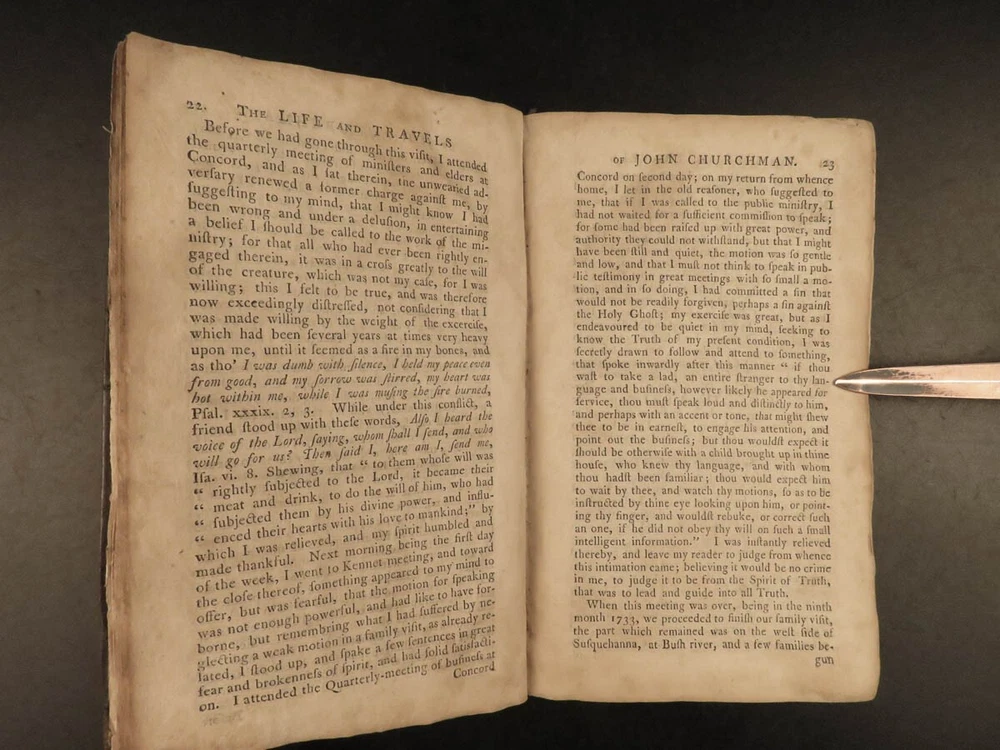 22. THE LIFE AND TRAVELS
Before we had gone through this viſit, I attended
the quarterly meeting of miniſters and elders at
Concord, and as I ſat therein, the unwearied ad-
verſary renewed a former charge againſt me, by
ſuggeſting to my mind, that I might know I had
been wrong and under a deluſion, in entertaining
a belief I ſhould be called to the work of the mi-
niſtry; for that all who had ever been rightly en-
gaged therein, it was in a croſs greatly to the will
of the creature, which was not my caſe, for I was
willing; this I felt to be true, and was therefore
now exceedingly diſtreſſed, not conſidering that I
was made willing by the weight of the exerciſe,
which had been ſeveral years at times very heavy
upon me, until it ſeemed as a fire in my bones, and
as tho' I was dumb with ſilence, I held my peace even
from good, and my ſorrow was ſtirred, my heart was
hot within me, while I was muſing the fire burned,
Pſal. xxxix. 2, 3. While under this conflict, a
friend ſtood up with theſe words, Alſo I heard the
voice of the Lord, ſaying, whom ſhall I ſend, and who
will go for us? Then ſaid I, here am I, ſend me,
Iſa. vi. 8. Shewing, that “ to them whoſe will was
“ rightly ſubjected to the Lord, it became their
“ meat and drink, to do the will of him, who had
“ ſubjected them by his divine power, and influ-
“ enced their hearts with his love to mankind;” by
which I was relieved, and my ſpirit humbled and
made thankful. Next morning being the firſt day
of the week, I went to Kennet meeting, and toward
the cloſe thereof, ſomething appeared to my mind to
offer, but was fearful, that the motion for ſpeaking
was not enough powerful, and had like to have for-
borne, but remembring what I had ſuffered by ne-
glecting a weak motion in a family viſit, as already re-
lated, I ſtood up, and ſpake a few ſentences in great
fear and brokenneſs of ſpirit, and had ſolid ſatisfacti-
on. I attended the Quarterly-meeting of buſineſs at
Concord
OF JOHN CHURCHMAN. 23
Concord on ſecond day; on my return from whence
home, I let in the old reaſoner, who ſuggeſted to
me, that if I was called to the public miniſtry, I
had not waited for a ſufficient commiſſion to ſpeak;
for ſome had been raiſed up with great power, and
authority they could not withſtand, but that I might
have been ſtill and quiet, the motion was ſo gentle
and low, and that I muſt not think to ſpeak in pub-
lic teſtimony in great meetings with ſo ſmall a mo-
tion, and in ſo doing, I had committed a ſin that
would not be readily forgiven, perhaps a ſin againſt
the Holy Ghoſt; my exerciſe was great, but as I
endeavoured to be quiet in my mind, ſeeking to
know the Truth of my preſent condition, I was
ſecretly drawn to follow and attend to ſomething,
that ſpoke inwardly after this manner “ if thou
waſt to take a lad, an entire ſtranger to thy lan-
guage and buſineſs, however likely he appeared for
ſervice, thou muſt ſpeak loud and diſtinctly to him,
and perhaps with an accent or tone, that might ſhew
thee to be in earneſt, to engage his attention, and
point out the buſineſs; but thou wouldſt expect it
ſhould be otherwiſe with a child brought up in thine
houſe, who knew thy language, and with whom
thou hadſt been familiar; thou would expect him
to wait by thee, and watch thy motions, ſo as to be
inſtructed by thine eye looking upon him, or point-
ing thy finger, and wouldſt rebuke, or correct ſuch
an one, if he did not obey thy will on ſuch a ſmall
intelligent information.” I was inſtantly relieved
thereby, and leave my reader to judge from whence
this intimation came; believing it would be no crime
in me, to judge it to be from the Spirit of Truth,
that was to lead and guide into all Truth.
When this meeting was over, being in the ninth
month 1733, we proceeded to finiſh our family viſit,
the part which remained was on the weſt ſide of
Suſquehanna, at Buſh river, and a few families be-
gun